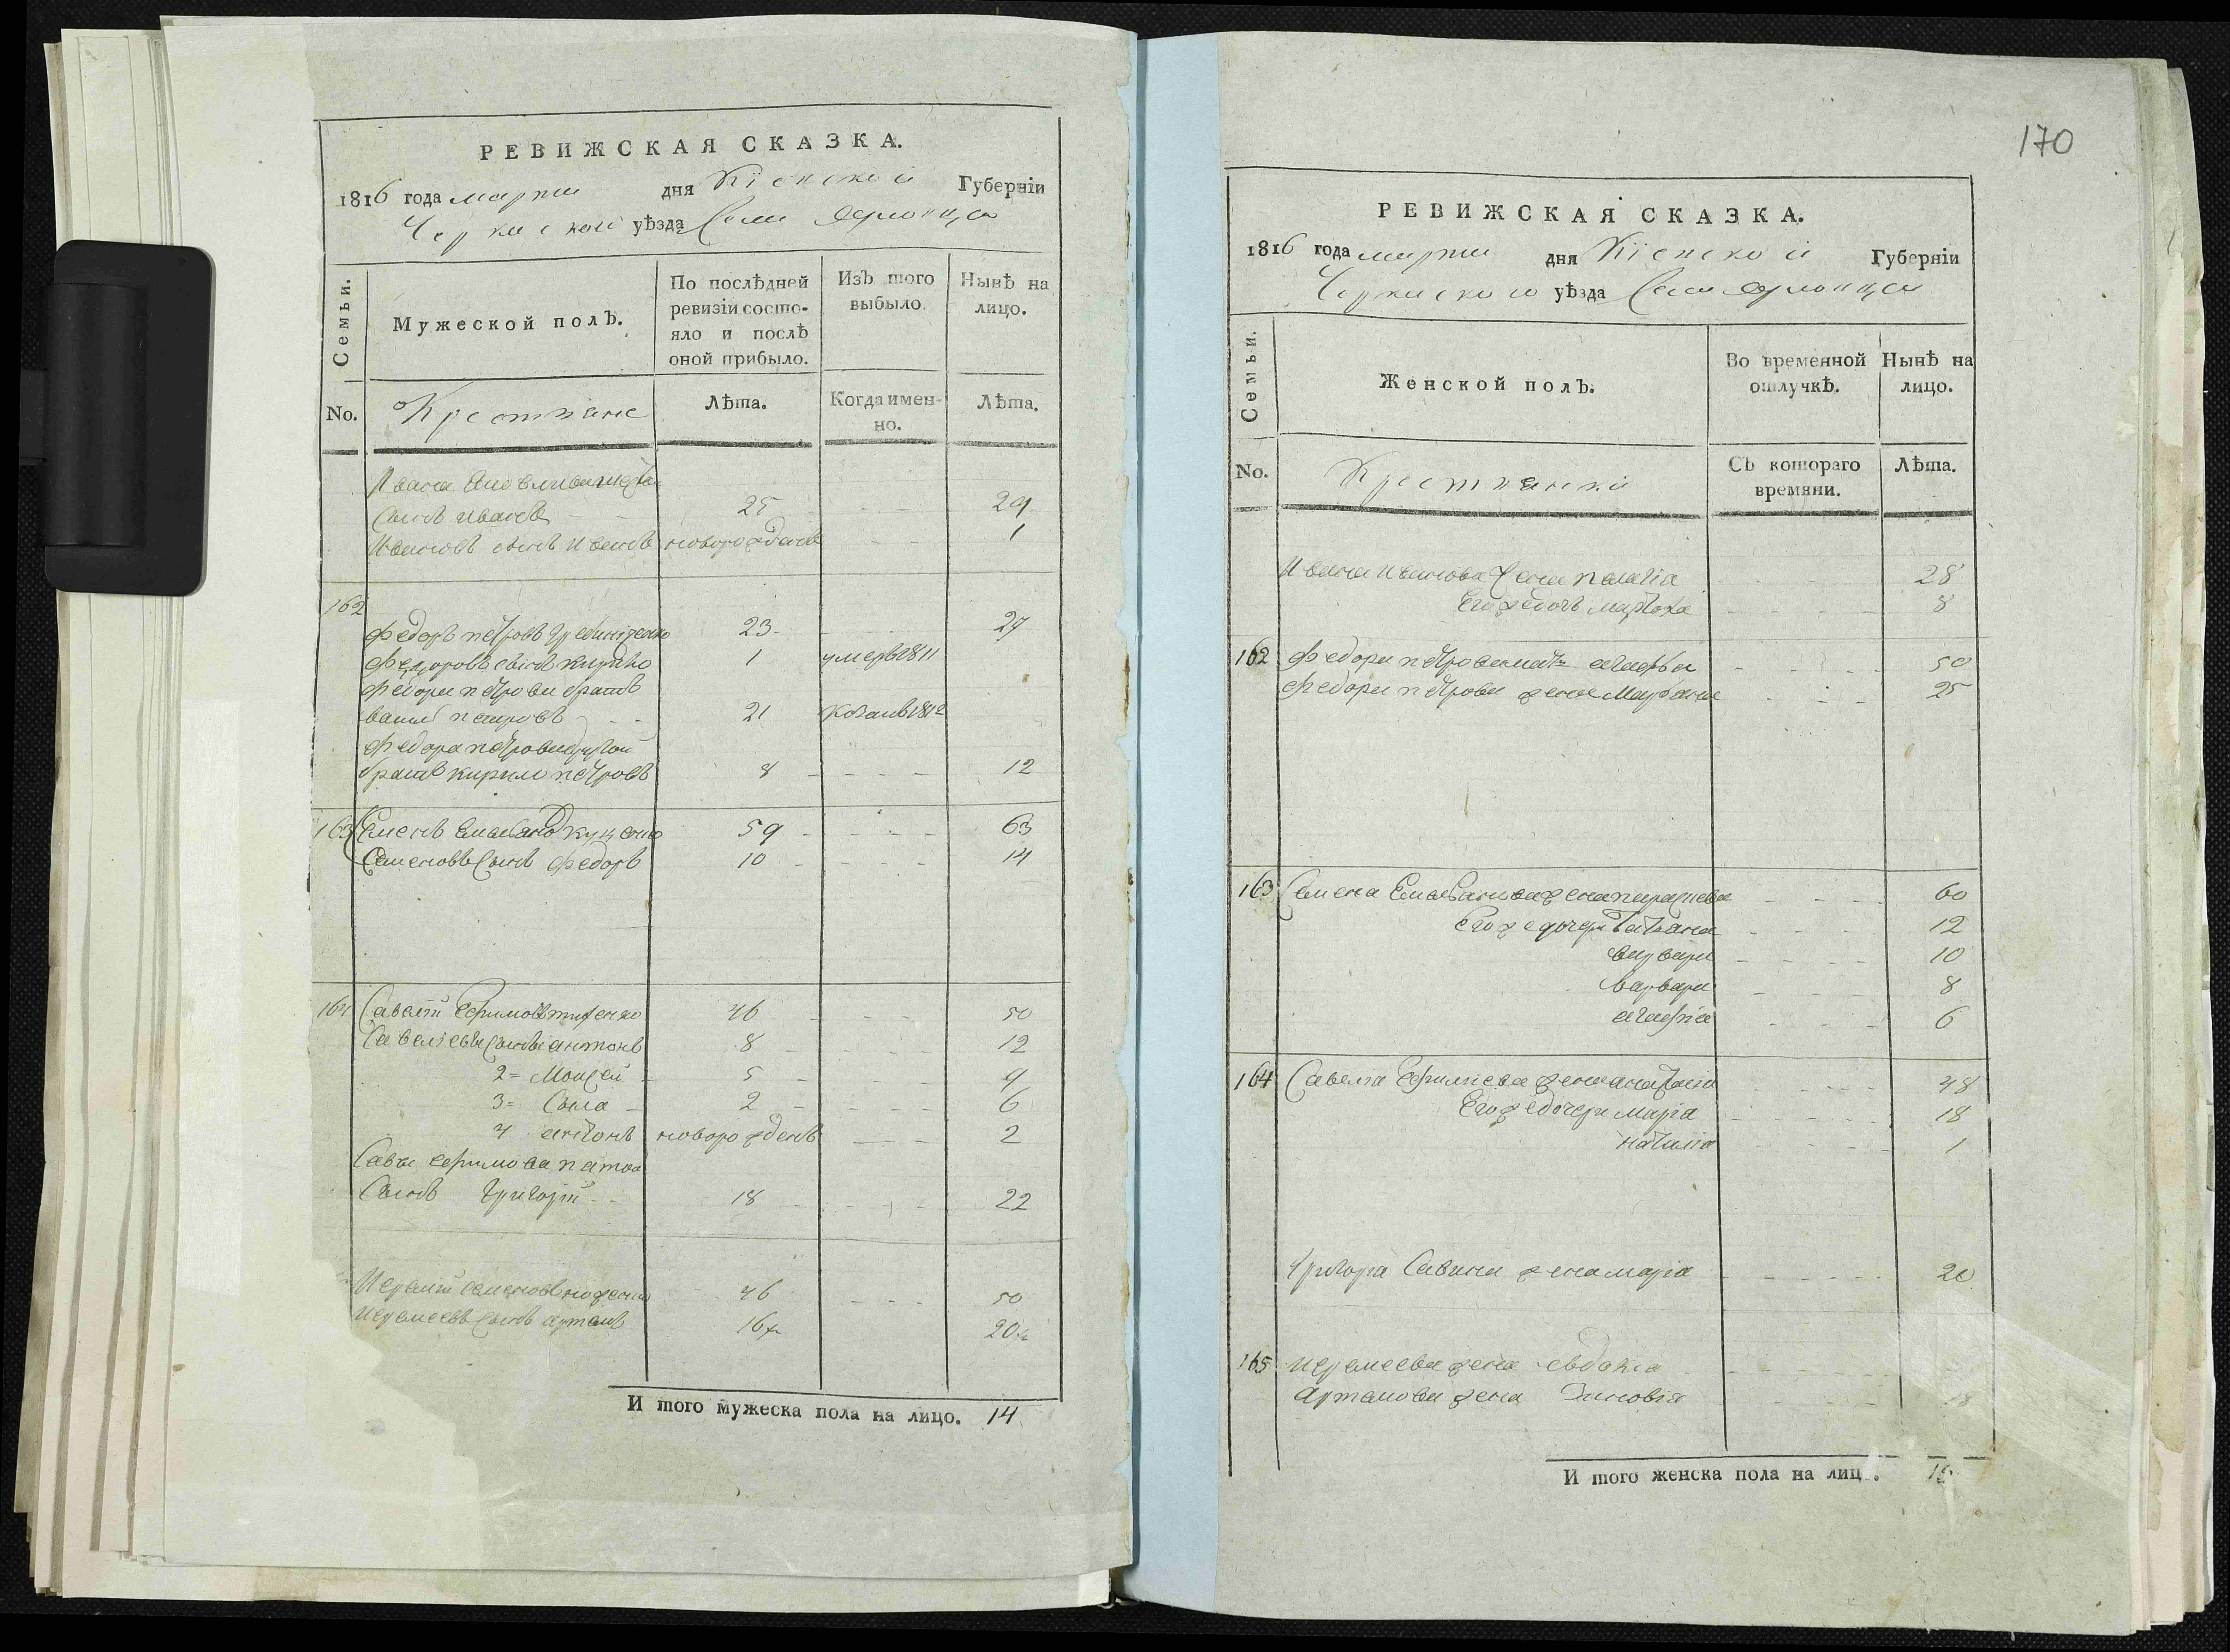 РЕВИЖСКАЯ СКАЗКА.
1816 года марта дня Кіевской Губерніи
Черкаского уѣзда Села
Семьи.
Мужеской полЪ.
По послѣдней ревизіи состояло и послѣ оной прибыло.
ИзЪ того выбыло.
Нынѣ на лицо.
No.
Крестьяне
Лѣта.
Когда именно.
Лѣта.
Ивана
Сынъ Иванъ 25 29
Ивановъ сынъ Иванъ новорожденъ 1
162
Федоръ петровъ гребиниченко 23 27
Федоровъ сынъ 1 умеръ 1811
Федора петрова братъ
василь петровъ 21 1812
Федора петрова другой
братъ кирило петровъ 8 12
163 Семенъ Емельяновъ куценко 59 63
Семеновъ Сынъ Федоръ 10 14
164 Савелій Ефимовъ 46 50
Савеліевы Сыны антонъ 8 12
2= Моисей 5 9
3= Сила 2 6
4 антонъ новорожденъ 2
Савы Ефимова пятой
Сынъ Григорій 18 22
Иеремій Семеновъ 46 50
Иеремеевъ Сынъ артемъ 16 20
И того мужеска пола на лицо. 14
170
РЕВИЖСКАЯ СКАЗКА.
1816 года марта дня Кіевской Губерніи
Черкаского уѣзда Села
Семьи.
Женской полЪ.
Во временной отлучкѣ.
Нынѣ на лицо.
No.
Крестьянки
СЪ котораго времяни.
Лѣта.
Ивана Иванова жена пелагія 28
Его же дочь марфа 8
162 Федора петрова мать агафья 50
Федора петрова жена Маріана 25
163 Семена Емельянова жена параскева 60
Его же дочери татьяна 12
варвара 10
варвара 8
агафіа 6
164 Савелія Ефимиева жена анастасіа 48
Его же дочери маріа 18
наталіа 1
Григоріа Савина жена маріа 20
165 Иеремеева жена евдокіа
Артемова жена Зиновіа 18
И того женска пола на лиц . 15